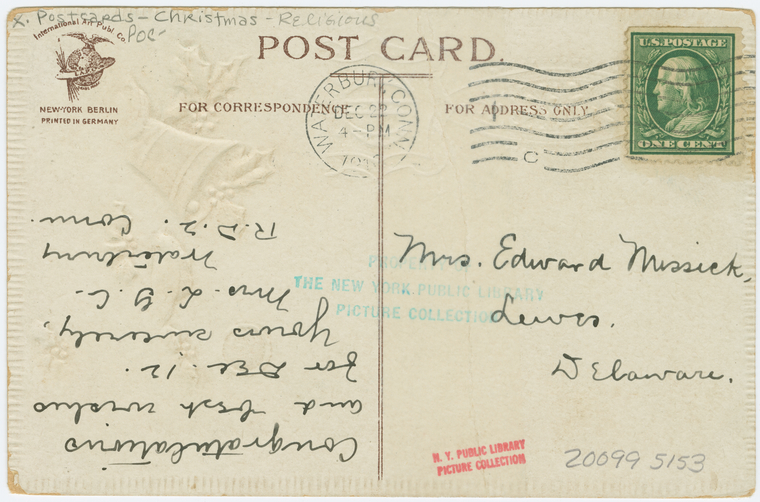 X. Postcards - Christmas - Religious
POC-
International Art Publ. Co.
NEW-YORK BERLIN
PRINTED IN GERMANY
POST CARD.
FOR CORRESPONDENCE
FOR ADDRESS ONLY.
WATERBURY, CONN.
DEC 22
4-PM
C
U.S. POSTAGE
ONE CENT
Congratulations
and best wishes
for Dec. 12.
Yours sincerely,
Mrs. L. G. C.
Waterbury
R.D.2. Conn.
Mrs. Edward Messick,
Lewes.
Delaware.
PROPERTY OF
THE NEW YORK PUBLIC LIBRARY
PICTURE COLLECTION
N. Y. PUBLIC LIBRARY
PICTURE COLLECTION
20099 5153